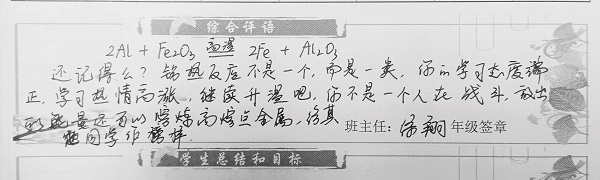 综合评语
2Al + Fe2O3 高温 2Fe + Al2O3
还记得么？铝热反应不是一个，而是一类。你的学习态度端
正，学习热情高涨，继续升温吧，你不是一个人在战斗，放出
的能量还可以熔炼高熔点金属，给其
他同学作榜样。
班主任： 年级签章
学生总结和目标